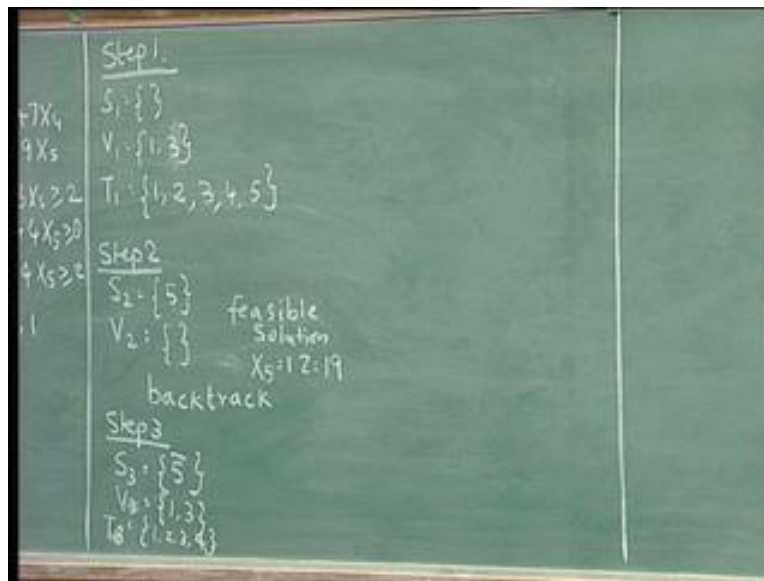 +7X₄
9X₅
X₄≥2
+4X₅≥0
4X₅≥2
1
Step1.
S₁={}
V₁={1,3}
T₁={1,2,3,4,5}
Step2
S₂={5}
V₂={}
feasible
Solution
X₅=1 Z=19
backtrack
Step3
S₃={5̄}
V₃={1,3}
T₃={1,2,3,4}